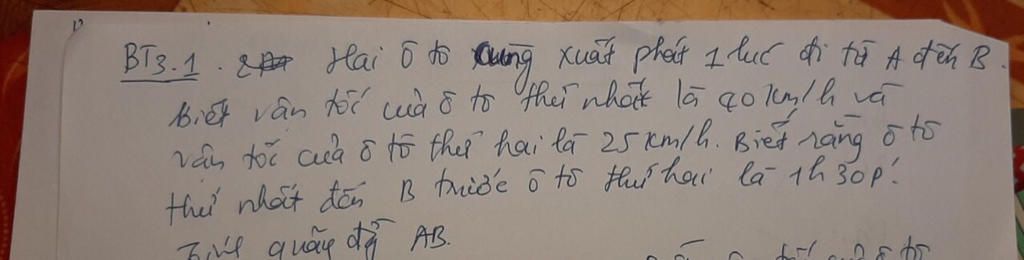 BT3.1. Hai ô tô cùng xuất phát 1 lúc đi từ A đến B.
Biết vân tốc của ô tô thứ nhất là 40 km/h và
vân tốc của ô tô thứ hai là 25 km/h. Biết rằng ô tô
thứ nhất đến B trước ô tô thứ hai là 1h 30p.
Tính quãng đg AB.